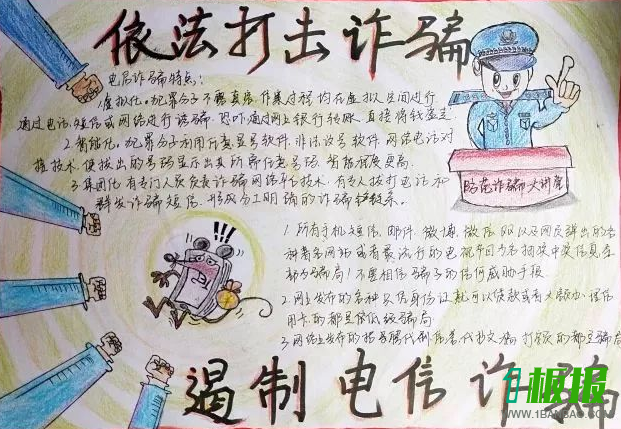 依法打击诈骗
电信诈骗特点：
1.虚拟化。犯罪分子不需真实作案过程均在虚拟空间进行
通过电话、短信或网络进行诱骗、恐吓，通过网上银行转账，直接将钱盗走
2.智能化。犯罪分子利用任意显号软件、非法改号软件、网络电话对
接技术，使拨出的号码显示出其所需任意号码，
3.集团化。有专门人员负责诈骗网络平台技术，有专人拨打电话和
群发诈骗短信，形成分工明确的诈骗链条。
防范诈骗大讲堂
1.所有手机短信、邮件、微博、微信、QQ以及网页弹出的各
种著名网站或者最流行的电视节目为名抽奖中奖信息全
部为骗局！不要相信骗子的任何威胁手段
2.网上发布的各种只凭身份证就可以贷款或者大额办理信
用卡的都是低级骗局
3.网络上发布的招
遏制电信诈骗
板报
WWW.1BANBAO.COM